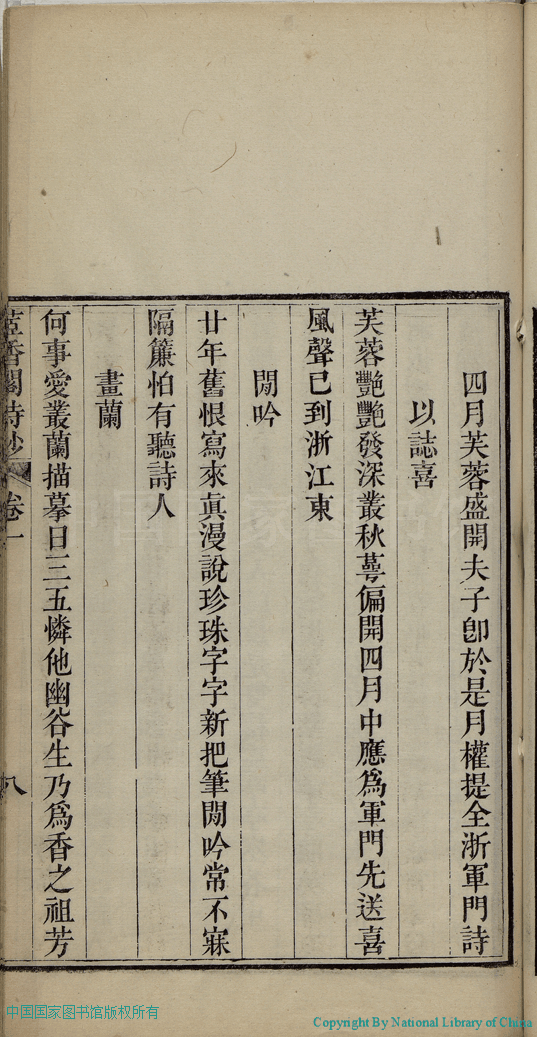 四月芙蓉盛開夫子卽於是月權提全浙軍門詩
以誌喜
芙蓉艷艷發深叢秋蕚偏開四月中應爲軍門先送喜
風聲已到浙江東
閒吟
廿年舊恨寫來眞漫說珍珠字字新把筆閒吟常不寐
隔簾怕有聽詩人
畫蘭
何事愛叢蘭描摹日三五憐他幽谷生乃爲香之祖芳
香閣詩鈔 卷一 八
中国国家图书馆版权所有
Copyright By National Library of China